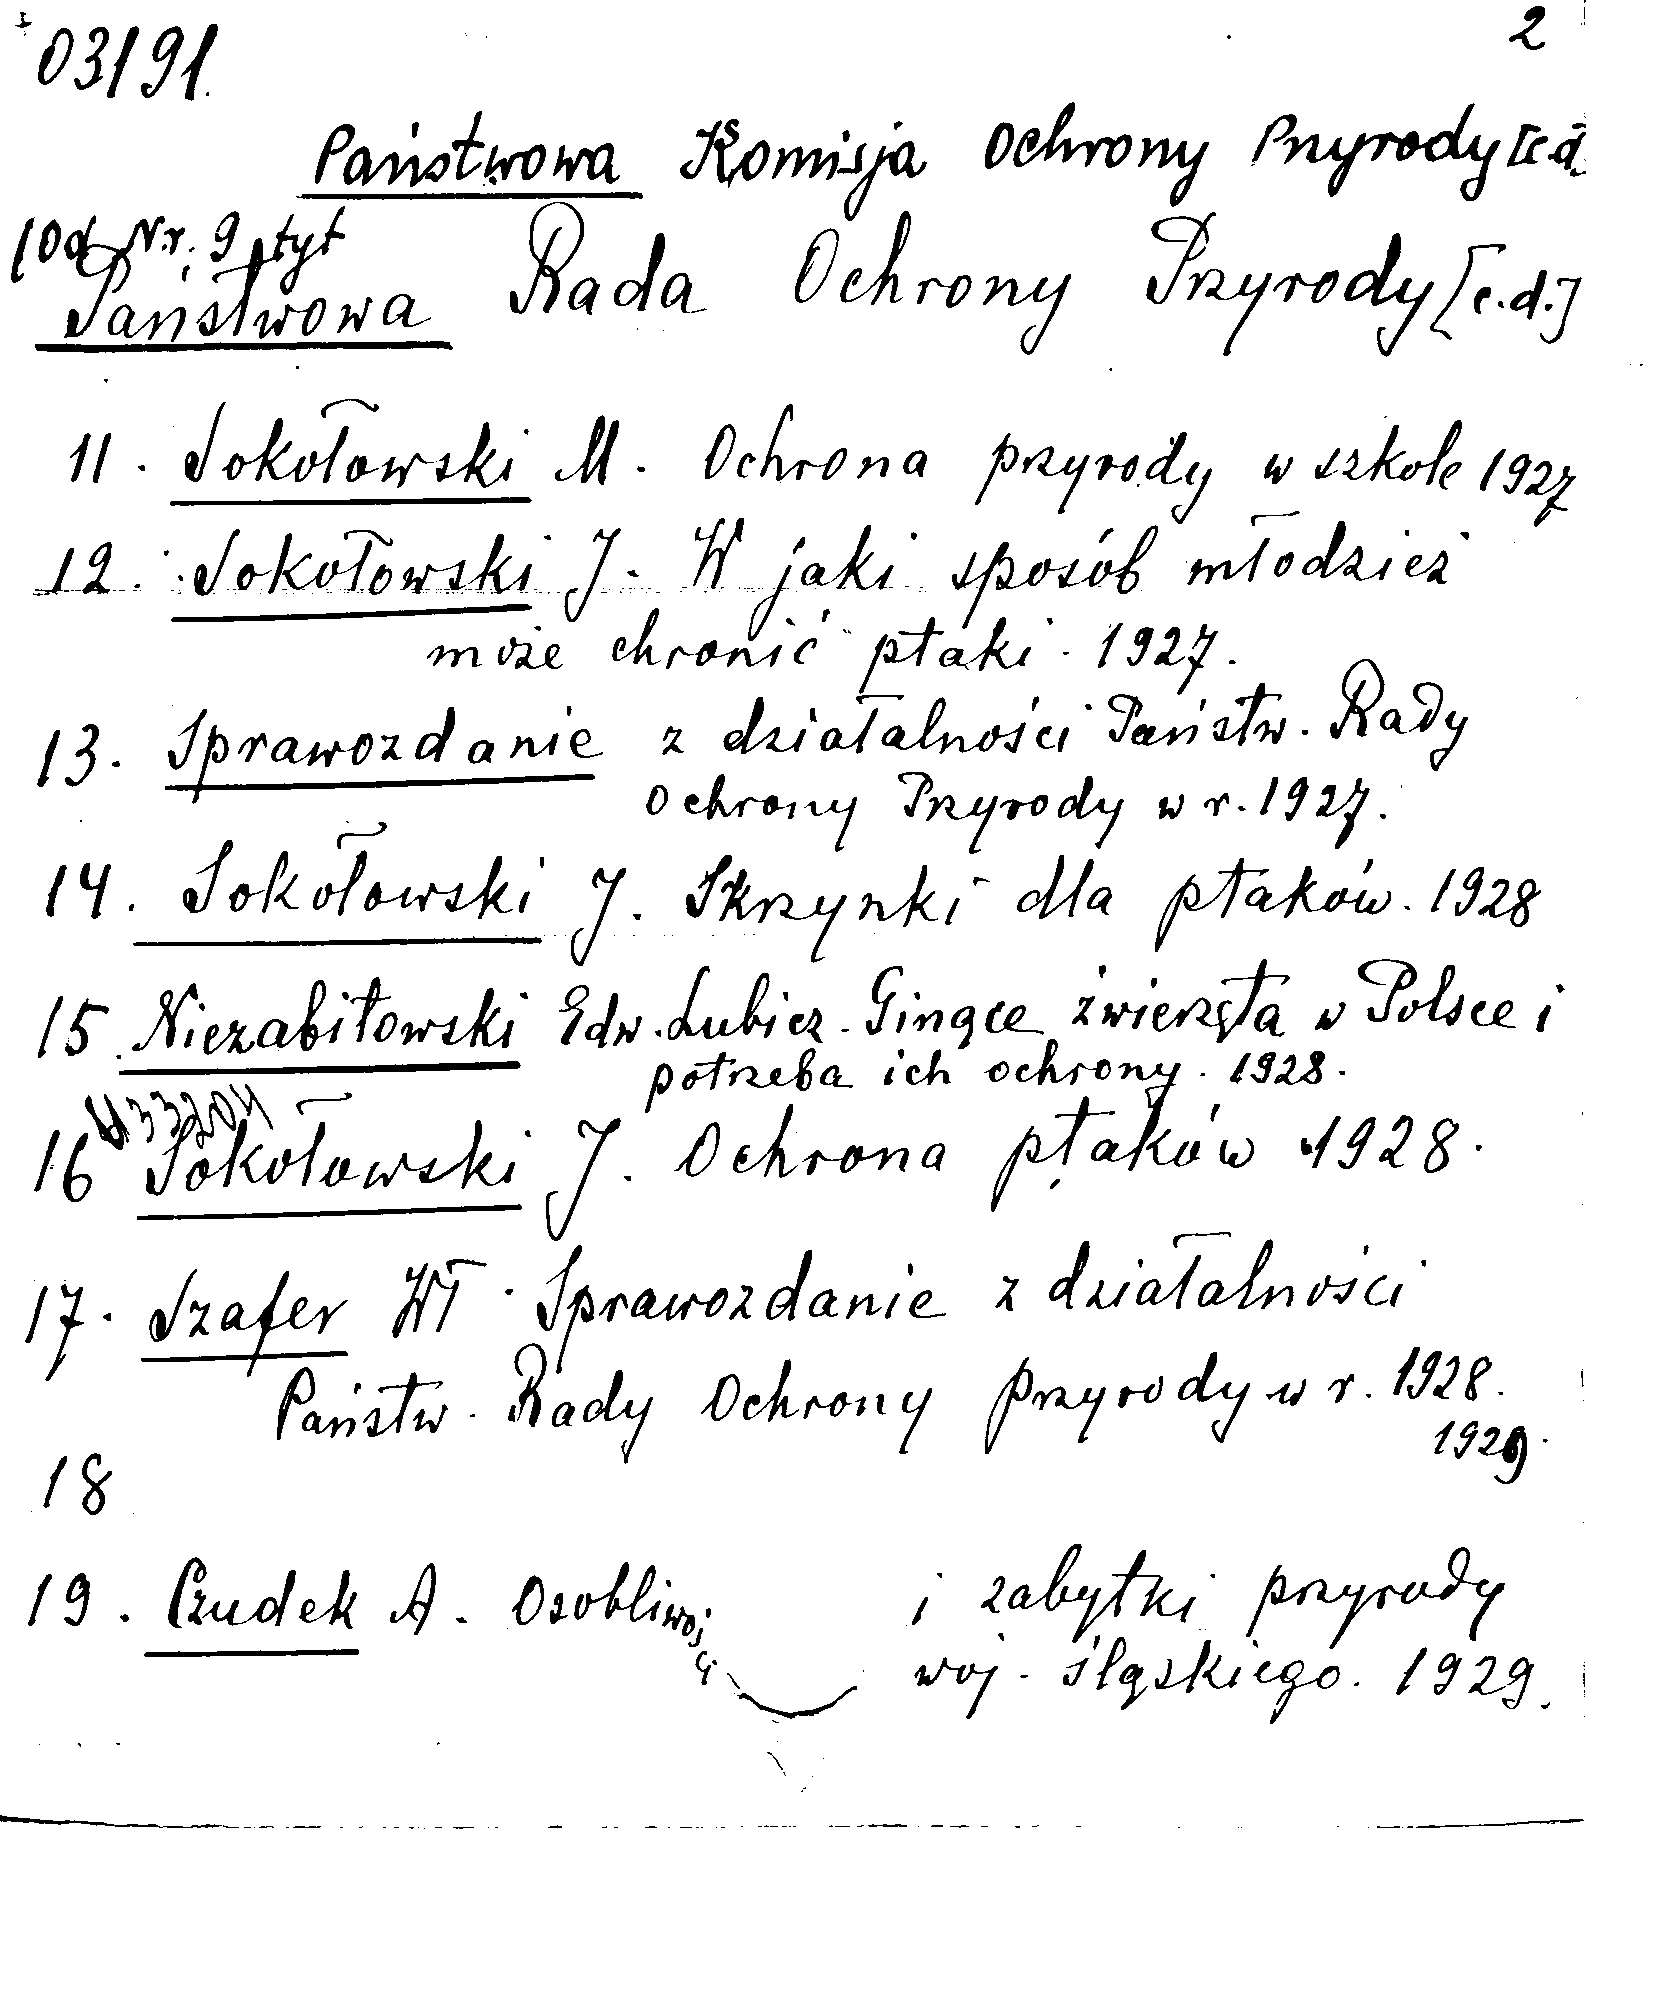 03191
2
Państwowa Komisja Ochrony Przyrody [c.d.
(Od Nr. 9 tyt
Państwowa Rada Ochrony Przyrody [c.d.]
11. Sokołowski M. Ochrona przyrody w szkole 1927
12. Sokołowski J. W jaki sposób młodzież
może chronić ptaki. 1927.
13. Sprawozdanie z działalności Państw. Rady
Ochrony Przyrody w r. 1927.
14. Sokołowski J. Skrzynki dla ptaków. 1928
15. Niezabitowski Edw. Lubicz. Ginące zwierzęta w Polsce i
potrzeba ich ochrony. 1928.
33204
16 Sokołowski J. Ochrona ptaków 1928.
17. Szafer Wł. Sprawozdanie z działalności
Państw. Rady Ochrony przyrody w r. 1928.
1929.
18
19. Czudek A. Osobliwości i zabytki przyrody
woj. śląskiego. 1929.